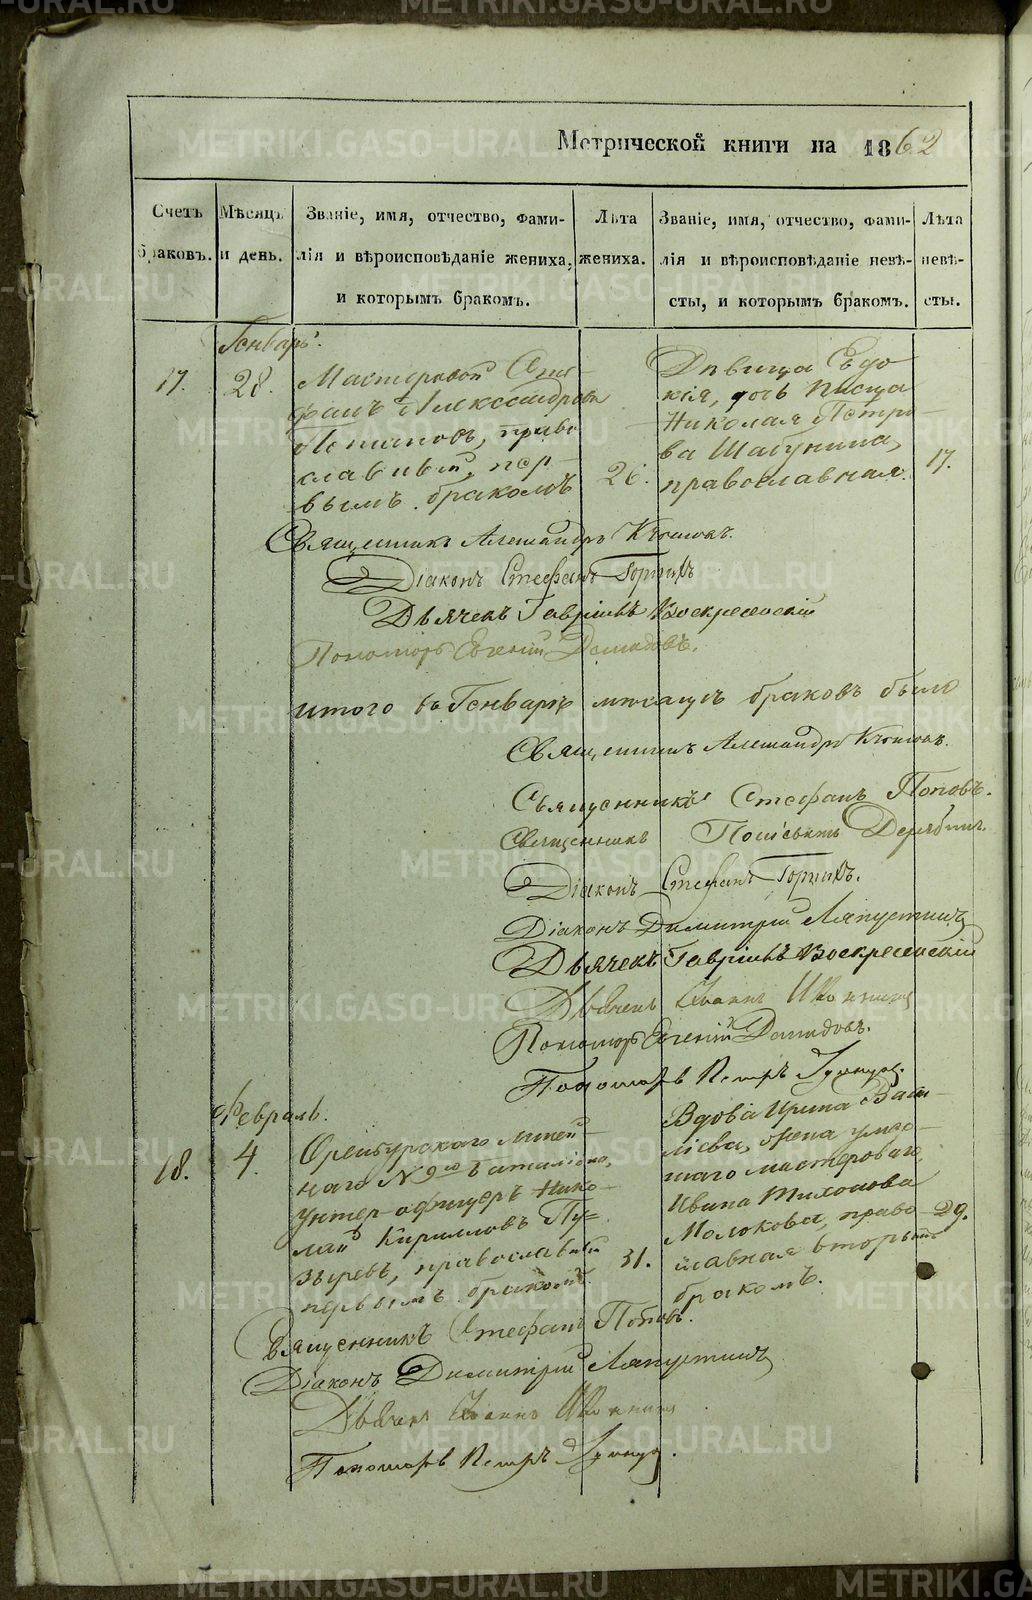 Метрической книги на 1862
Счетъ браковъ.
Мѣсяцъ и день.
Званіе, имя, отчество, фами-
лія и вѣроисповѣданіе жениха,
и которымъ бракомъ.
Лѣта жениха.
Званіе, имя, отчество, фами-
лія и вѣроисповѣданіе невѣ-
сты, и которымъ бракомъ.
Лѣта невѣ-
сты.
Генварь.
17.
28.
Мастеровой Сте-
фанъ Александровъ
православный, пер-
вымъ бракомъ
26.
Дѣвица Евдо-
кія, дочь писца
Николая Петро-
ва Шабунина,
православная.
17.
Священникъ Александръ
Діаконъ Стефанъ
Дьячекъ Гавріилъ Воскресенскій
Пономарь Евгеній Демидовъ.
итого въ Генварѣ мѣсяцѣ браковъ было
Священникъ Александръ
Священникъ Стефанъ Поповъ.
Священникъ Дерябинъ.
Діаконъ Стефанъ
Діаконъ Димитрій Ляпустинъ
Дьячекъ Гавріилъ Воскресенскій
Дьячекъ Іоаннъ
Пономарь Евгеній Демидовъ.
Пономарь Петръ
Февраль.
18.
4.
Оренбургскаго линей-
наго N 9го баталіона,
унтер-офицеръ Нико-
лай Кирилловъ Пу-
зыревъ, православный
первымъ бракомъ.
31.
Вдова Ирина Васи-
ліева, жена умер-
шаго мастероваго,
Ивана Тихонова
Молокова, право-
славная вторымъ
бракомъ.
29.
Священникъ Стефанъ Поповъ.
Діаконъ Димитрій Ляпустинъ
Дьячекъ Іоаннъ
Пономарь Петръ
METRIKI.GASO-URAL.RU